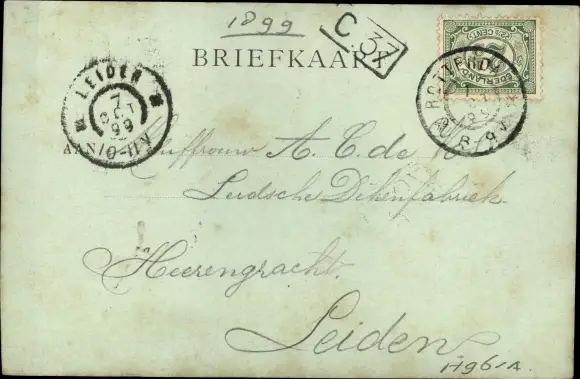 1899
C 37
BRIEFKAART
LEIDEN
7
OCT
99
10-11V
ROTTERDAM
8-9V
NEDERLAND
CENT
AAN Juffrouw A. C. de
Leidsche Dekenfabriek.
Heerengracht.
Leiden
H961A